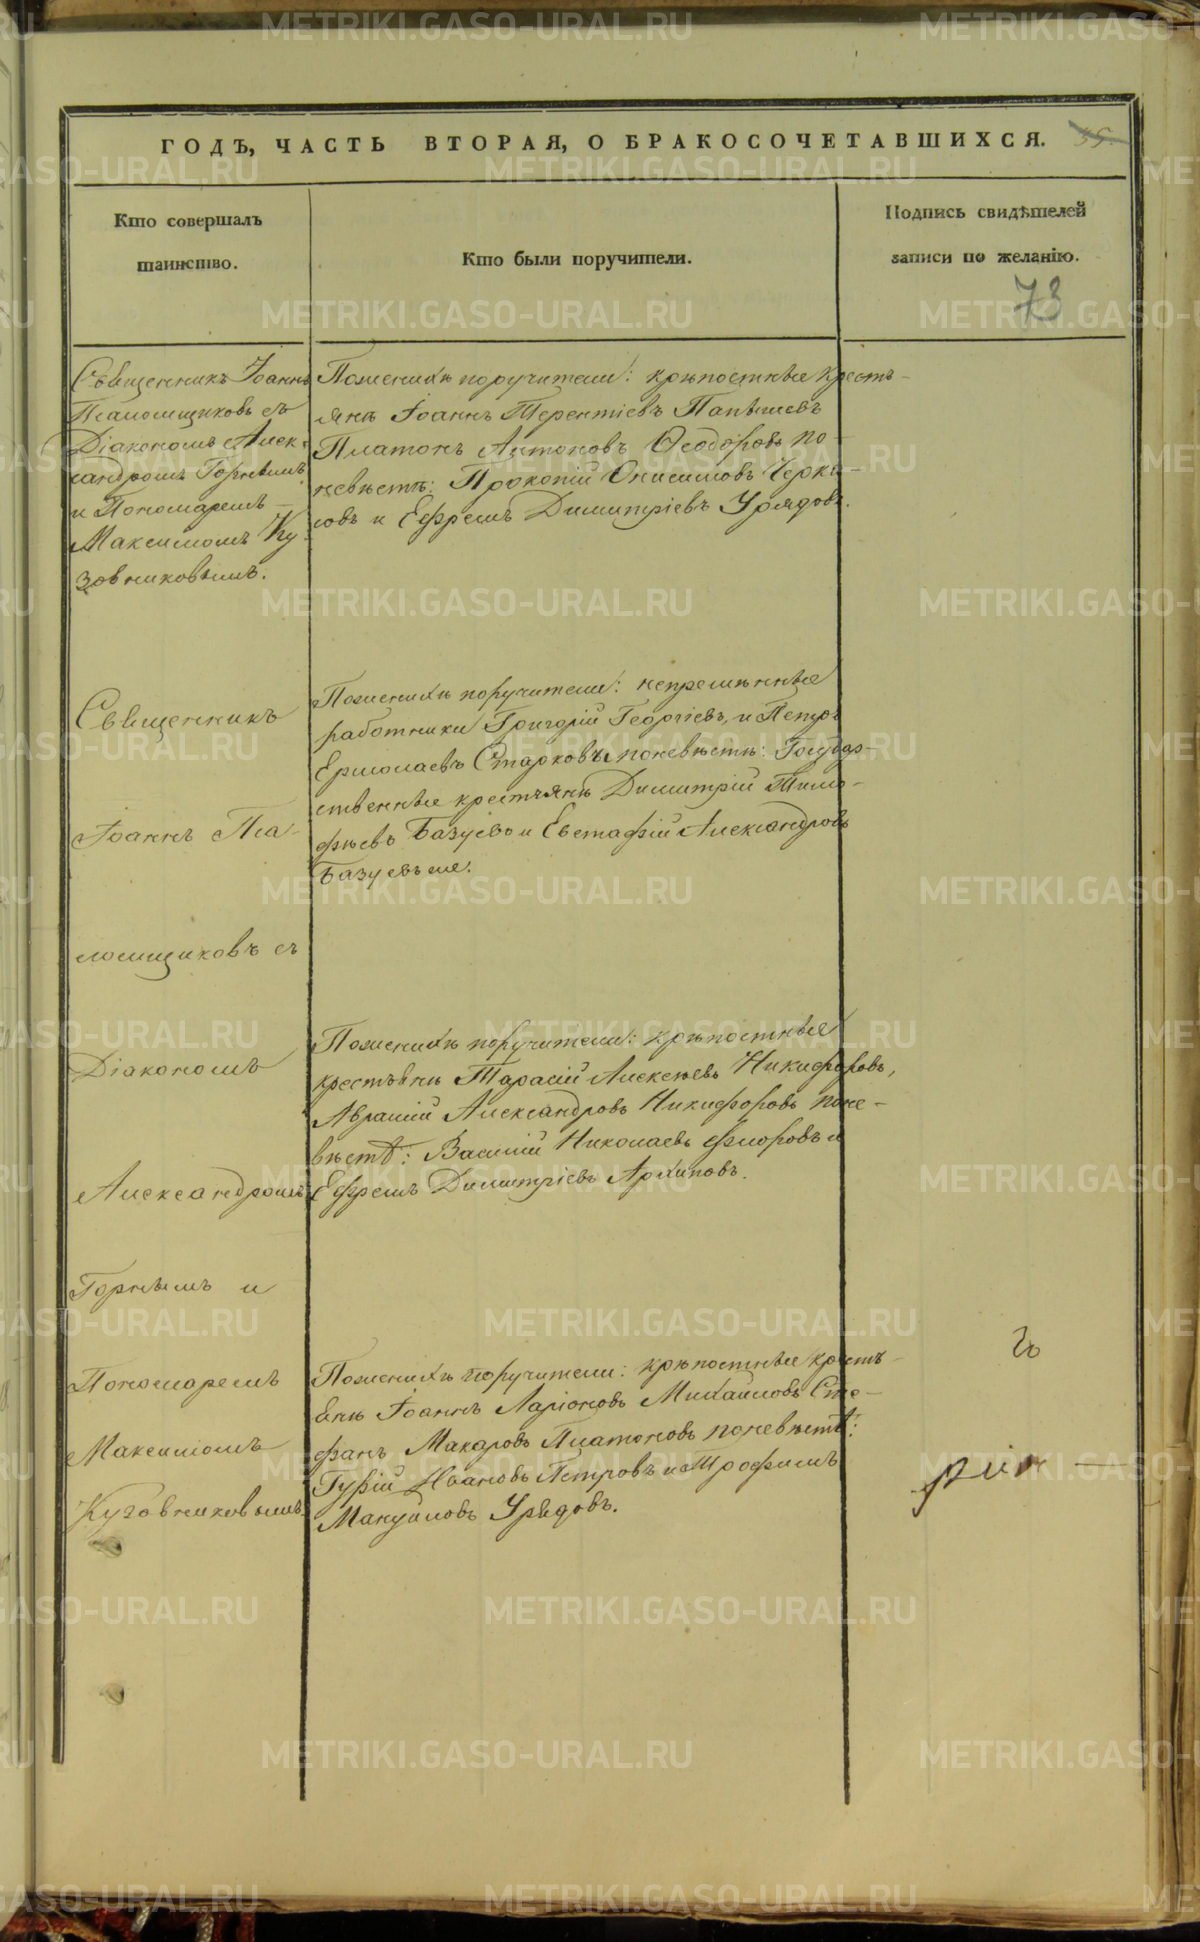 ГОДЪ, ЧАСТЬ ВТОРАЯ, О БРАКОСОЧЕТАВШИХСЯ. 35.
Кто совершалъ
таинство.
Кто были поручители.
Подпись свидѣтелей
записи по желанію.
73
Священникъ Іоаннъ
Псаломщиковъ съ
Діакономъ Алек-
сандромъ Горнымъ
и Пономаремъ
Максимомъ Ку-
зовниковымъ.
Поженихѣ поручители: крѣпостные кресть-
яне Іоаннъ Терентіевъ
Платонъ Антоновъ Ѳеодоровъ по-
невѣстѣ: Прокопій Онисимовъ Черка-
совъ и Ефремъ Димитріевъ Урядовъ.
Священникъ
Іоаннъ Пса-
ломщиковъ съ
Діакономъ
Александромъ
Горнымъ и
Пономаремъ
Максимомъ
Кузовниковымъ.
Поженихѣ поручители: непремѣнные
работники Григорій Георгіевъ, и Петръ
Ермолаевъ Старковы поневѣстѣ: Государ-
ственные крестьяне Димитрій Тимо-
фѣевъ Базуевъ и Евстафій Александровъ
Базуевъ
Поженихѣ поручители: крѣпостные
крестьяне Тарасій Алексѣевъ Никифоровъ,
Авраамій Александровъ Никифоровъ поне-
вѣстѣ: Василій Николаевъ Флоровъ и
Ефремъ Димитріевъ Архиповъ.
Поженихѣ поручители: крѣпостные кресть-
яне Іоаннъ Ларіоновъ Михайловъ Сте-
фанъ Макаровъ Платоновъ поневѣстѣ:
Гурій Ивановъ Петровъ и Трофимъ
Мануиловъ Урядовъ.
METRIKI.GASO-URAL.RU